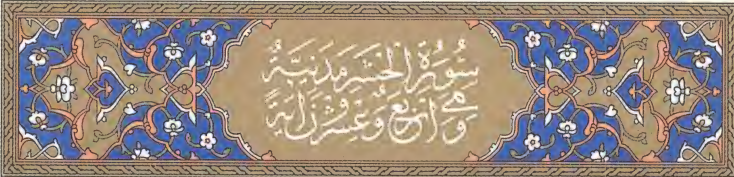 سُورَةُ الْحَشْرِ مَدَنِيَّةٌ
وَهِيَ أَرْبَعٌ وَعِشْرُونَ آيَةً